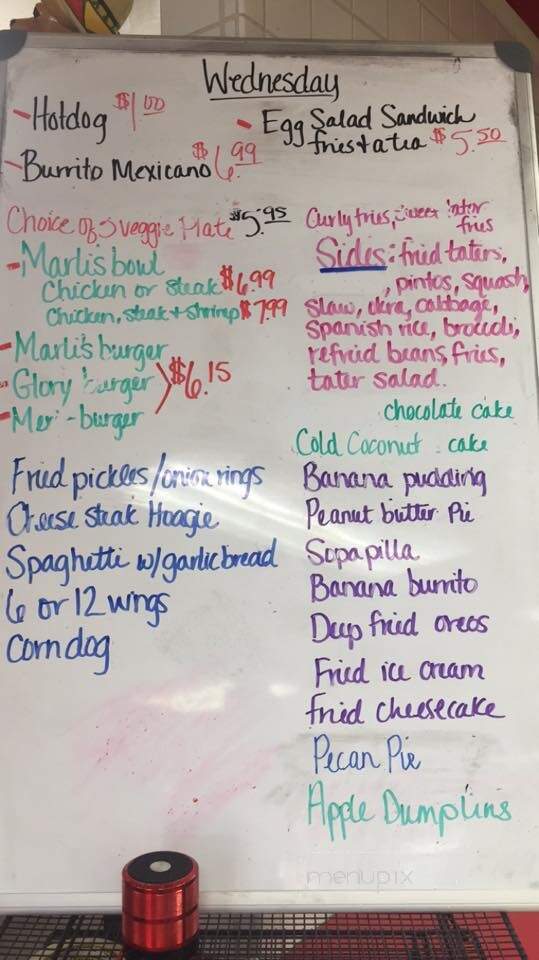 Wednesday
- Hotdog $1.00
- Burrito Mexicano $6.99
- Egg Salad Sandwich
fries + a tea $5.50
Choice of 3 veggie Plate $5.95
- Marlis bowl
Chicken or steak $6.99
Chicken, steak + shrimp $7.99
- Marlis burger
- Glory burger $6.15
- Mex - burger
Fried pickles/onion rings
Cheese steak Hoagie
Spaghetti w/garlic bread
6 or 12 wings
Corndog
Curly fries, sweet tater
fries
Sides: fried taters,
, pintos, squash,
slaw, okra, cabbage,
Spanish rice, broccoli,
refried beans, fries,
tater salad.
chocolate cake
Cold Coconut cake
Banana pudding
Peanut butter Pie
Sopapilla
Banana burrito
Deep fried oreos
Fried ice cream
fried cheesecake
Pecan Pie
Apple Dumplins
menupix